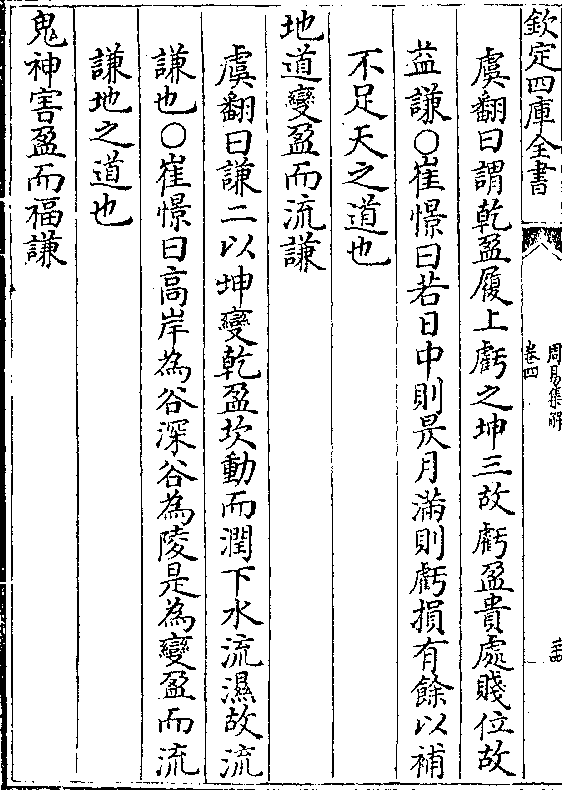 欽定四庫全書
周易集解
卷四
虞翻曰謂乾盈履上虧之坤三故虧盈貴處賤位故
益謙○崔憬曰若日中則昃月滿則虧損有餘以補
不足天之道也
地道變盈而流謙
虞翻曰謙二以坤變乾盈坎動而潤下水流濕故流
謙也○崔憬曰高岸為谷深谷為陵是為變盈而流
謙地之道也
鬼神害盈而福謙